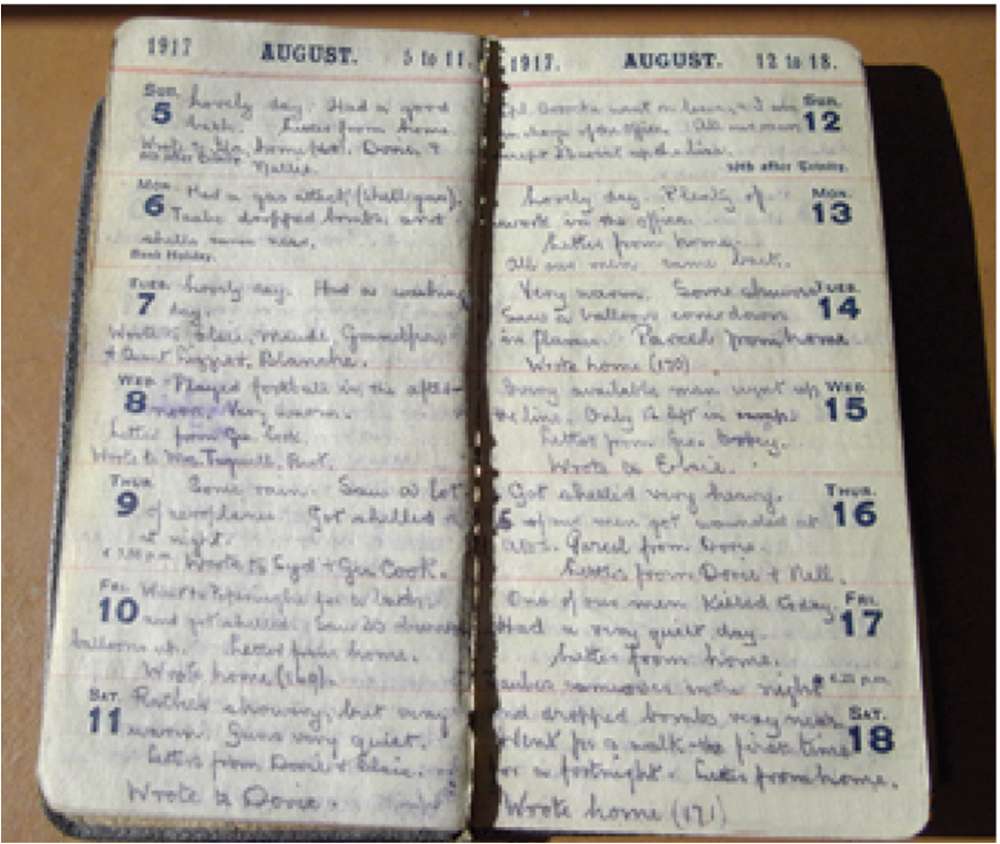 1917 AUGUST. 5 to 11.
SUN. 5 Lovely day. Had a good
bath. Letter from home.
Wrote to home Dorie &
Nellie.
MON. 6 Had a gas attack (shell gas),
Taube dropped bombs, and
shells came near.
Bank Holiday.
TUES. 7 Lovely day. Had a washing
day.
Wrote to Elsie, Maude, Grandpa
& Aunt Blanche.
WED. 8 Played football in the after-
noon. Very warm.
Letter from Geo. Cook.
Wrote to Mrs
THUR. 9 Some rain. Saw a lot
of aeroplanes. Got shelled
at night.
Wrote to Syd & Geo Cook.
FRI. 10 Went to Poperinghe for a bath
and got shelled. Saw 20
balloons up. Letter from home.
Wrote home
SAT. 11 Rather showery, but very
warm. Guns very quiet.
Letters from Dorie & Elsie.
Wrote to Dorie.
1917. AUGUST. 12 to 18.
went on leave, & I am SUN.
in charge of the office. All our men 12
went up the line.
10th after Trinity.
Lovely day. Plenty of MON.
work in the office. 13
Letter from home.
All our men came back.
Very warm. Some TUES.
Saw a balloon come down 14
in flames. Parcel from home.
Wrote home (170).
Every available man went up WED.
the line. Only 12 left in camp. 15
Letter from Geo.
Wrote to Elsie.
Got shelled very heavy. THUR.
of our men got wounded at 16
Parcel from Dorie.
Letters from Dorie & Nell.
One of our men killed today. FRI.
Had a very quiet day. 17
Letter from home.
came over in the night
and dropped bombs very near. SAT.
Went for a walk the first time 18
for a fortnight. Letter from home.
Wrote home (171)